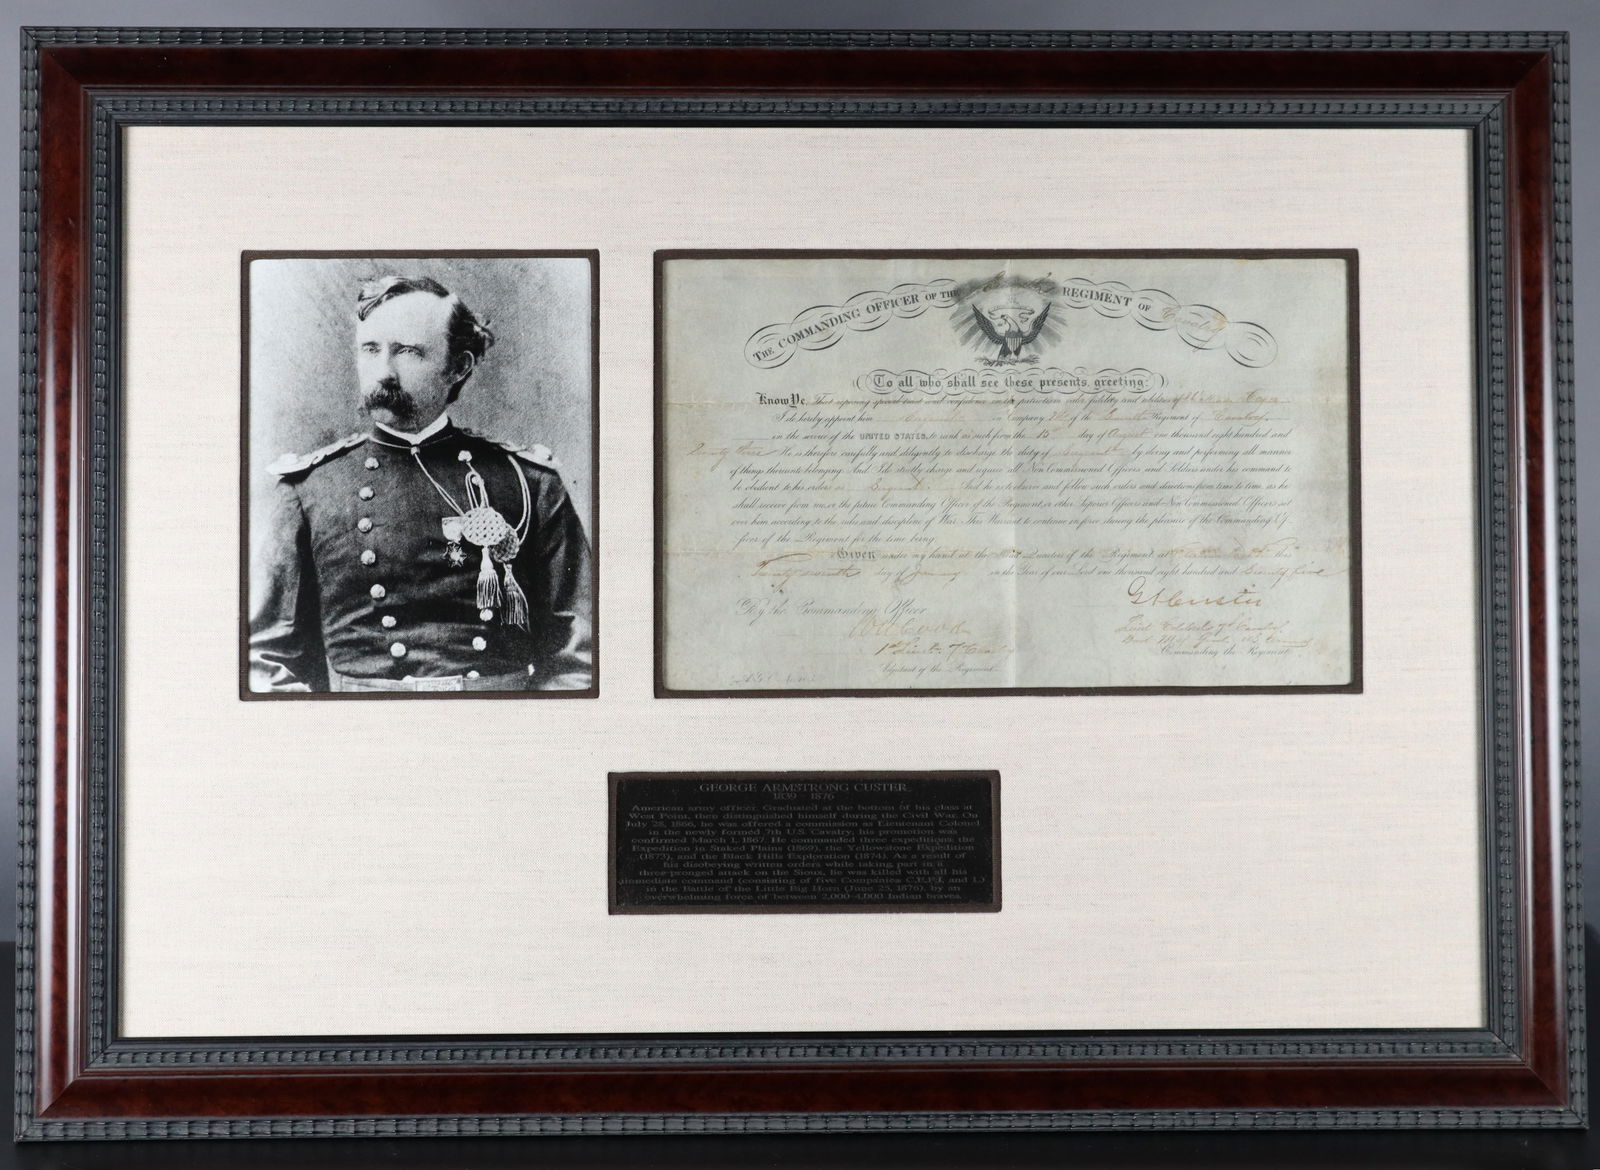 THE COMMANDING OFFICER OF THE REGIMENT OF Cavalry
To all who shall see these presents, greeting:
Know Ye, That reposing special trust and confidence in the patriotism, valor, fidelity and abilities of
I do hereby appoint him in Company of the Seventh Regiment of Cavalry
in the service of the UNITED STATES, to rank as such from the 15th day of August one thousand eight hundred and
He is therefore carefully and diligently to discharge the duty of Sergeant by doing and performing all manner
of things thereunto belonging. And I do strictly charge and require all Non-Commissioned Officers and Soldiers under his command to
be obedient to his orders as Sergeant. And he is to observe and follow such orders and directions from time to time, as he
shall receive from me, or the future Commanding Officer of the Regiment, or other Superior Officers and Non-Commissioned Officers set
over him, according to the rules and discipline of War. This Warrant to continue in force during the pleasure of the Commanding Of-
ficer of the Regiment for the time being.
Given under my hand at the Head Quarters of the Regiment, at this
day of January in the Year of our Lord one thousand eight hundred and Seventy five
By the Commanding Officer
GACuster
WWCook
Lieut Col 7th Cavalry
1st Lieut. 7th Cavalry
Commanding the Regiment.
Adjutant of the Regiment.
GEORGE ARMSTRONG CUSTER
1839 - 1876
American army officer. Graduated at the bottom of his class at
West Point, then distinguished himself during the Civil War. On
July 28, 1866, he was offered a commission as Lieutenant Colonel
in the newly formed 7th U.S. Cavalry; his promotion was
confirmed March 1, 1867. He commanded three expeditions; the
Expedition in Staked Plains (1869), the Yellowstone Expedition
(1873), and the Black Hills Exploration (1874). As a result of
his disobeying written orders while taking part in a
three-pronged attack on the Sioux, he was killed with all his
immediate command (consisting of five Companies C,E,F,I, and L)
in the Battle of the Little Big Horn (June 25, 1876), by an
overwhelming force of between 2,000-4,000 Indian braves.